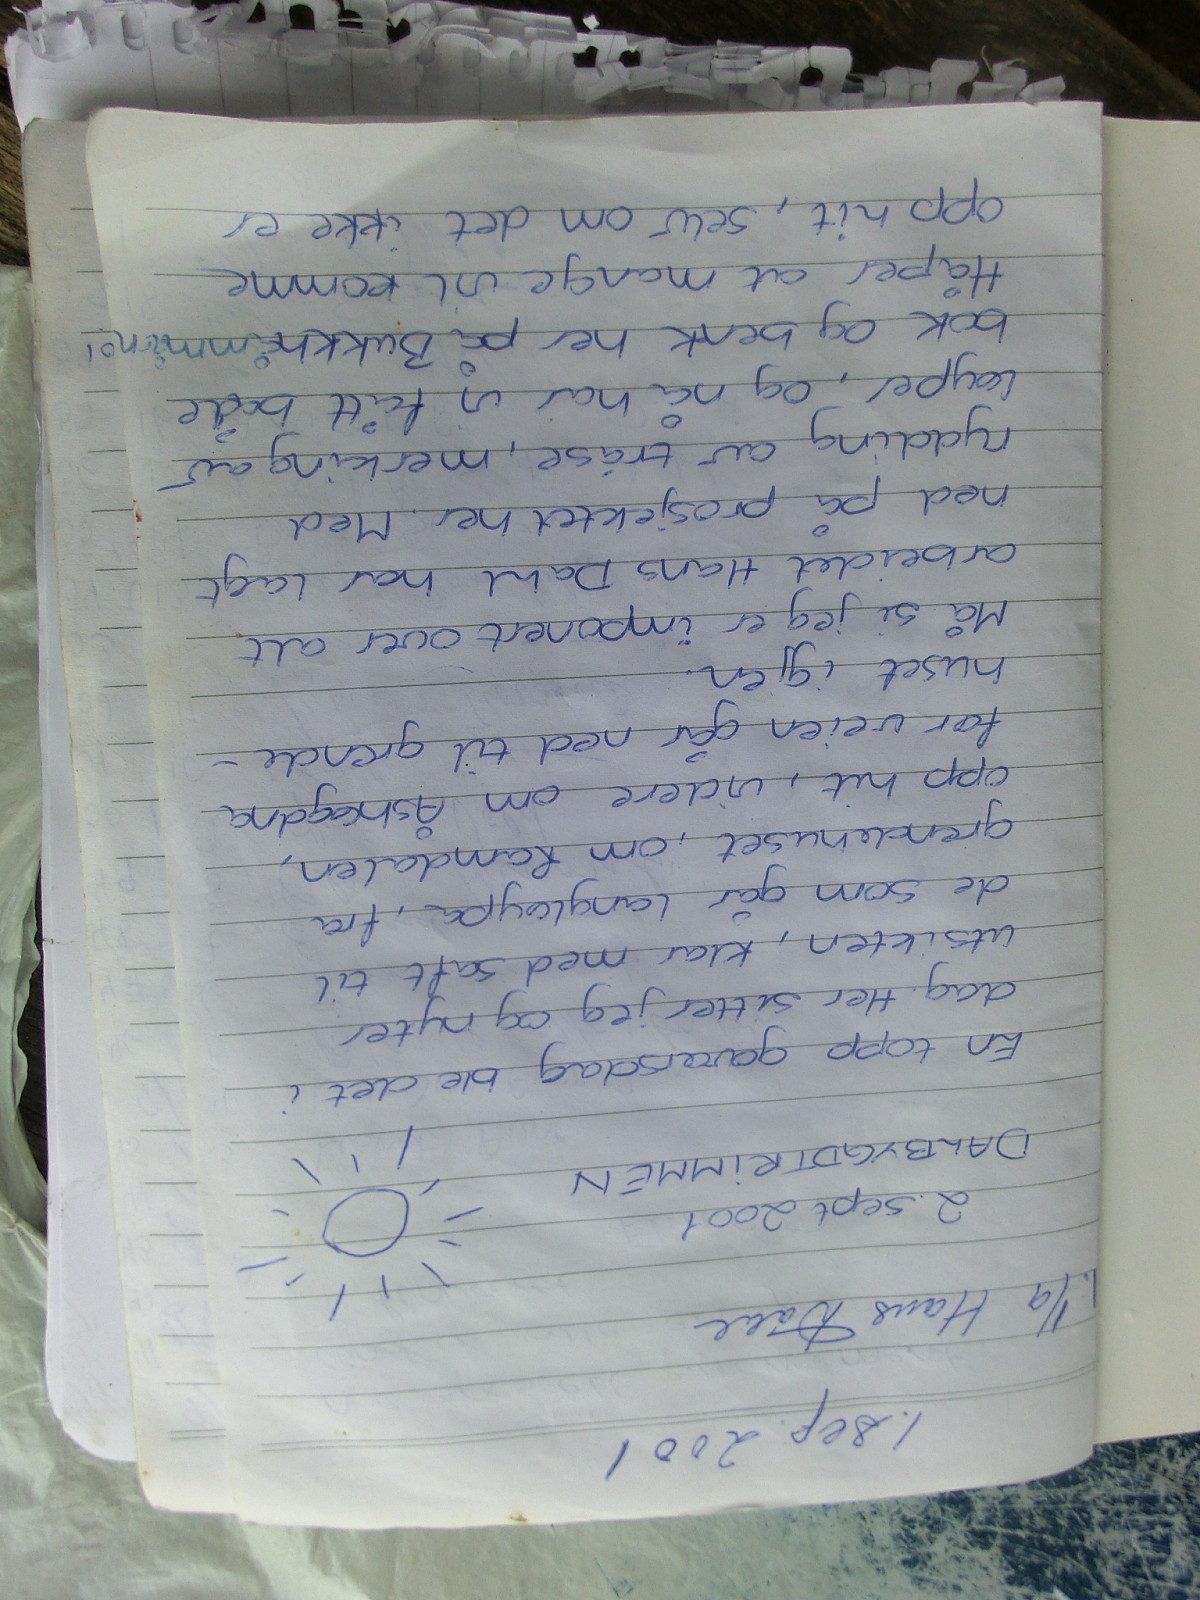 1. Sep. 2001
1/9 Hans Dahl
2. sept 2001
DALBYGDTRIMMEN
En topp gavarsdag ble det i
dag. Her sitter jeg og nyter
utsikten, klar med saft til
de som går langløypa, fra
grendehuset, om Ramdalen,
opp hit, videre om Åshøgdna
før veien går ned til grende-
huset igjen.
Må si jeg er imponert over alt
arbeidet Hans Dahl har lagt
ned på prosjektet her. Med
rydding av tràse, merking av
løyper, og nå har vi fått både
bok og benk her på Bukkhåmmårn!
Håper at mange vil komme
opp hit, selv om det ikke er